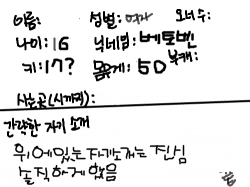 이름: 성별: 여자 오너수:
나이: 16 닉네임: 베토벤
키: 17? 몸무게: 50 부캐:
사는곳(시까지):
간략한 자기소개
위에있는자기소개는 진심
솔직하게했음